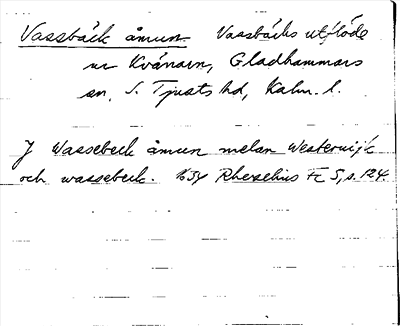 Vassbäck åmun. Vassbäcks utflöde
ur Kvännarn, Gladhammars
sn, S. Tjusts hd, Kalm. l.
J Wassebeck åmun melan Westerwijk
och wassebeck. 1634 Rhezelius Fc 5, s. 124.